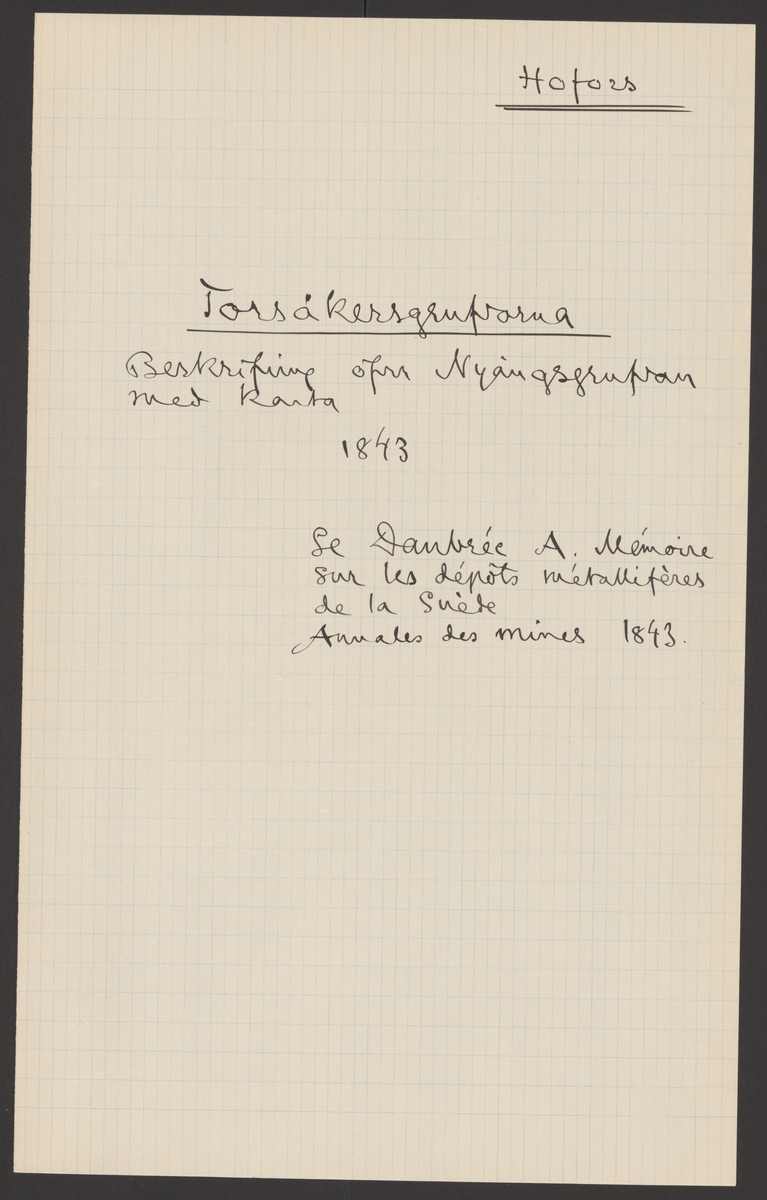 Hofors
Torsåkersgrufvorna
Beskrifning öfver Nyängsgrufvan
med karta
1843
Se Daubrée A. Mémoire
sur les dépôts métallifères
de la Suède
Annales des mines 1843.